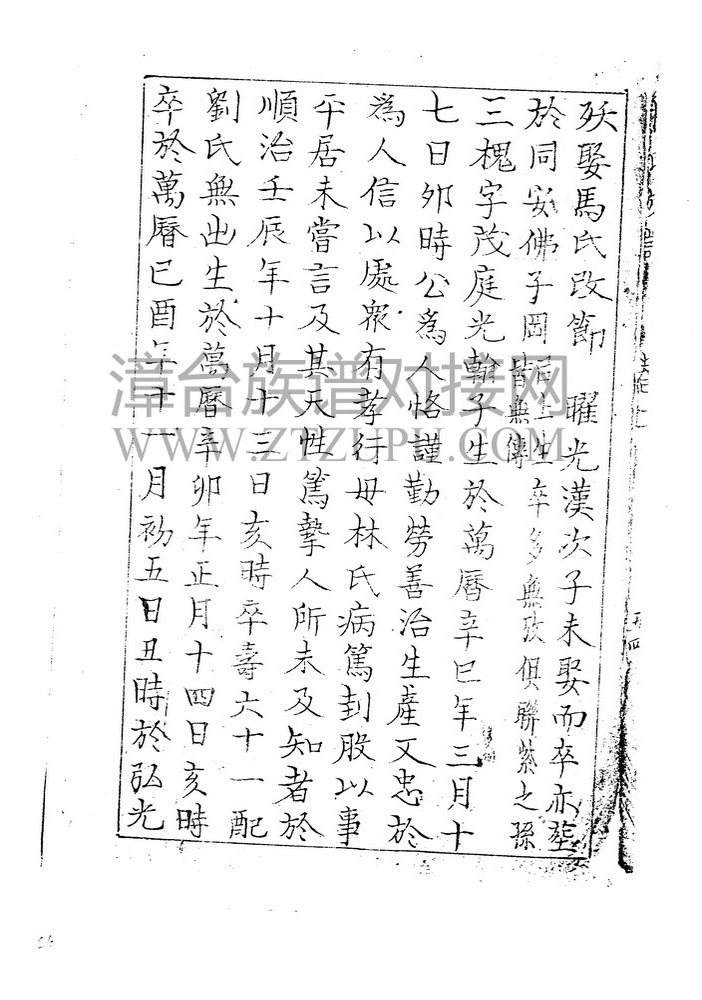 殀娶馬氏改節 曜光漢次子未娶而卒亦塟
於同安佛子岡
生卒多無攷俱聯紫之孫
皆無傳
三槐字茂庭光翰子生於萬曆辛巳年三月十
七日卯時公為人恪謹勤勞善治生產又忠於
為人信以處眾有孝行母林氏病篤刲股以事
平居未嘗言及其天性篤摯人所未及知者於
順治壬辰年十月十三日亥時卒壽六十一配
劉氏無出生於萬曆辛卯年正月十四日亥時
卒於萬曆己酉年十一月初五日丑時於弘光
漳台族谱对接网
WWW.ZTZUPU.COM